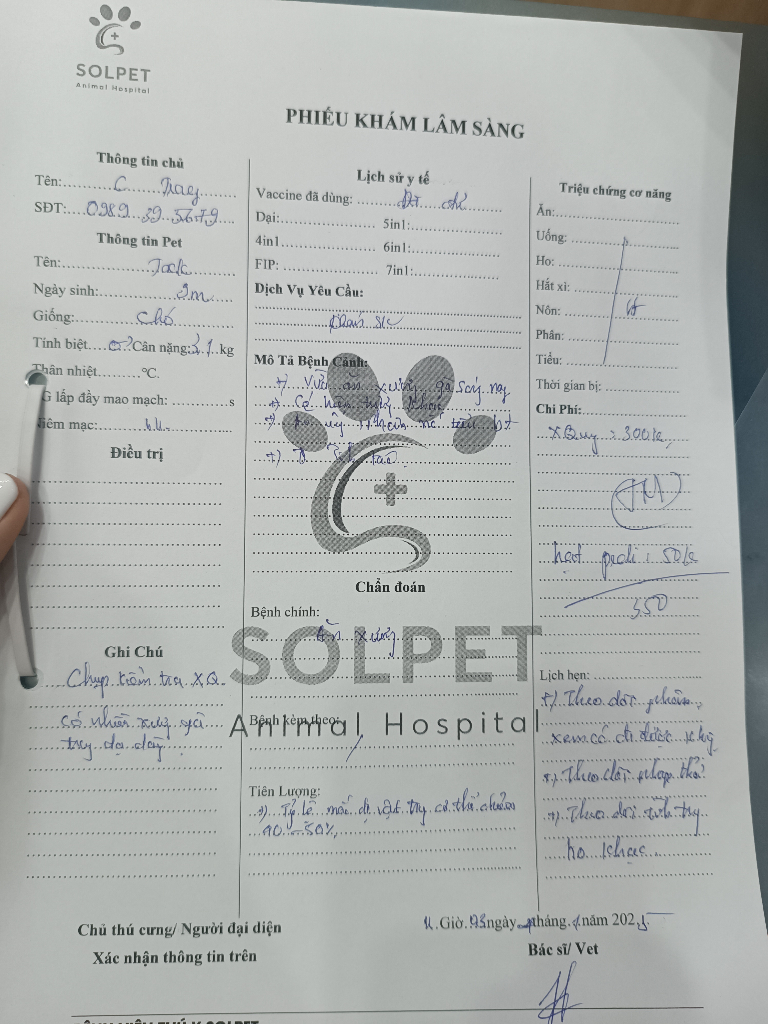 SOLPET
Animal Hospital
PHIẾU KHÁM LÂM SÀNG
Thông tin chủ
Tên: C. Trang
SĐT: 0989 39 5679
Thông tin Pet
Tên: Jack
Ngày sinh: 2m
Giống: chó
Tính biệt ♂ Cân nặng: 3.1 kg
Thân nhiệt °C.
TG lấp đầy mao mạch: s
Niêm mạc:
Điều trị
Ghi Chú
Chụp kiểm tra XQ
có nhiều xương gà
trg dạ dày
Lịch sử y tế
Vaccine đã dùng:
Dại: 5in1:
4in1 6in1:
FIP: 7in1:
Dịch Vụ Yêu Cầu:
Khám sk
Mô Tả Bệnh Cảnh:
+) Vừa ăn xương gà sáng nay
+) Có hiện tượng khạc
+)
+)
Chẩn đoán
Bệnh chính:
Ăn xương
Bệnh kèm theo:
Tiên Lượng:
+) Tỷ lệ mắc dị vật trg có thể chiếm
40 - 50%
SOLPET
Animal Hospital
Triệu chứng cơ năng
Ăn:
Uống:
Ho:
Hắt xì:
Nôn:
Phân:
Tiểu:
Thời gian bị:
Chi Phí:
XQuy: 300k
TM
hạt pedi: 50k
350
Lịch hẹn:
+) Theo dõi phân
xem có đi được k kg
+) Theo dõi nhịp thở
+) Theo dõi tình trg
ho khạc
Giờ ngày tháng năm 202
Chủ thú cưng/ Người đại diện
Xác nhận thông tin trên
Bác sĩ/ Vet
BỆNH VIỆN THÚ Y SOLPET